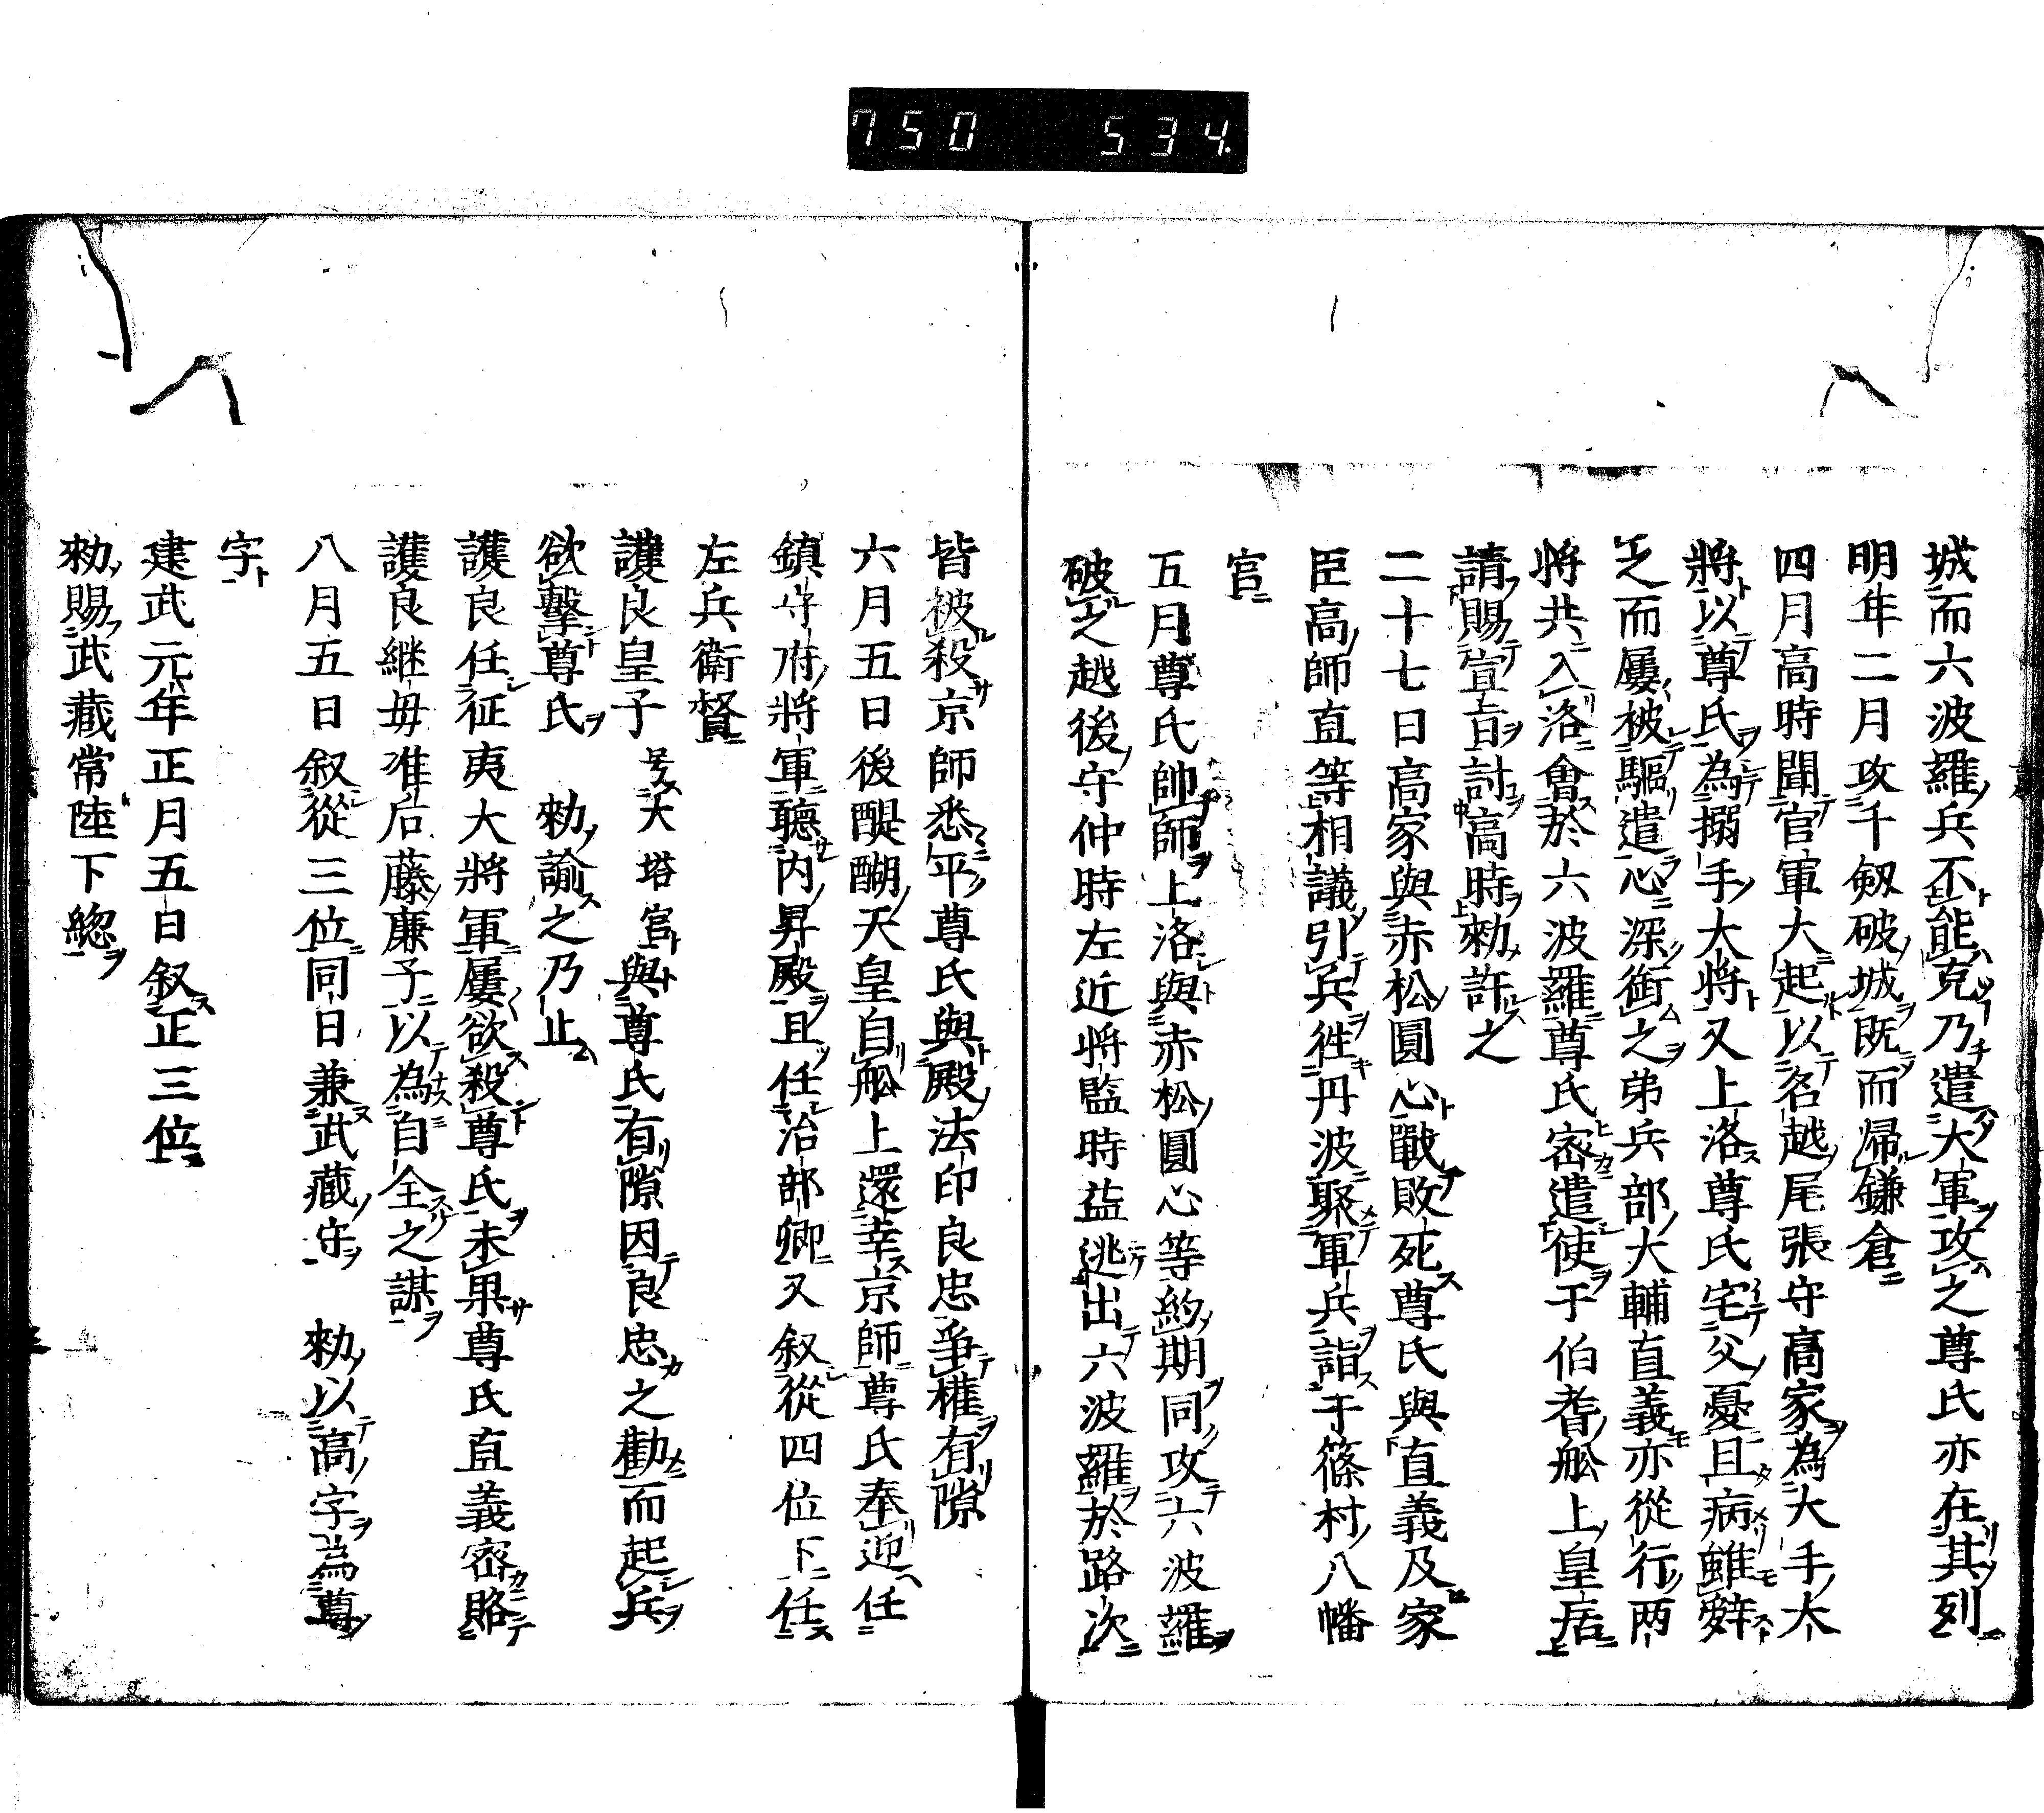 750 534.
城而六波羅兵不能克乃遣大軍攻之尊氏亦在其列
明年二月攻千剱破城既而帰鎌倉
四月高時聞官軍大起以名越尾張守高家為大手大
将以尊氏為搦手大将又上洛尊氏宅父憂且病雖辞
之而屢被驅遣心深銜之弟兵部大輔直義亦從行两
将共入洛會於六波羅尊氏密遣使于伯耆舩上皇居
請賜宣旨討高時勑許之
二十七日高家與赤松圓心戰敗死尊氏與直義及家
臣高師直等相議引兵徃丹波聚軍兵詣于篠村八幡
宮
五月尊氏帥師上洛與赤松圓心等約期同攻六波羅
破之越後守仲時左近将監時益逃出六波羅於路次
皆被殺京師悉平尊氏與殿法印良忠爭權有隙
六月五日後醍醐天皇自舩上還幸京師尊氏奉迎任
鎮守府將軍聽内昇殿且任治部卿又叙從四位下任
左兵衛督
護良皇子号大塔宮與尊氏有隙因良忠之勸而起兵
欲擊尊氏 勑諭之乃止
護良任征夷大將軍屢欲殺尊氏未果尊氏直義密賂
護良継母准后藤廉子以為自全之謀
八月五日叙從三位同日兼武藏守 勑以高字為尊
字
建武元年正月五日叙正三位
勑賜武藏常陸下總